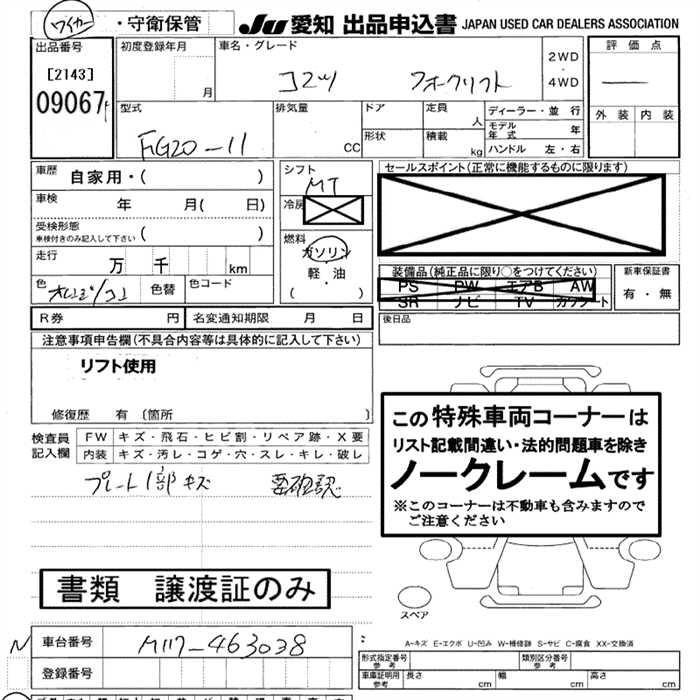 ワイヤー ・守衛保管 JU 愛知 出品申込書 JAPAN USED CAR DEALERS ASSOCIATION
出品番号 初度登録年月 車名・グレード 評価点
[2143] 月 コマツ フォークリフト 2WD・4WD
09067 外装 内装
型式 排気量 ドア 定員 人 ディーラー・並行
FG20-11 CC 形状 積載 kg モデル年式 年
ハンドル 左・右
車歴 自家用・( ) シフト MT セールスポイント(正常に機能するものに限ります)
車検 年 月( 日) 冷房
受検形態 車検付きのみ記入して下さい ( ) 燃料 ガソリン
走行 万 千 km 軽・油
色 オレンジ/コ 色替 色コード ( ・ )
装備品(純正品に限り○をつけてください) 新車保証書
PS PW エアB AW 有・無
SR ナビ TV カワシート
R券 円 名変通知期限 月 日 後日品
注意事項申告欄(不具合内容等は具体的に記入して下さい)
リフト使用
修復歴 有 〔箇所 〕
検査員記入欄 FW キズ・飛石・ヒビ割・リペア跡・X要
内装 キズ・汚レ・コゲ・穴・スレ・キレ・破レ
プレート1部キズ 要確認
この特殊車両コーナーは
リスト記載間違い・法的問題車を除き
ノークレームです
※このコーナーは不動車も含みますので
ご注意ください
書類 譲渡証のみ
スペア
A-キズ E-エクボ U-凹み W-補修跡 S-サビ C-腐食 XX-交換済
N 車台番号 M117-463038
登録番号
形式指定番号 参考 類別区分番号 参考
車庫証明用 参考 長さ cm 幅 cm 高さ cm